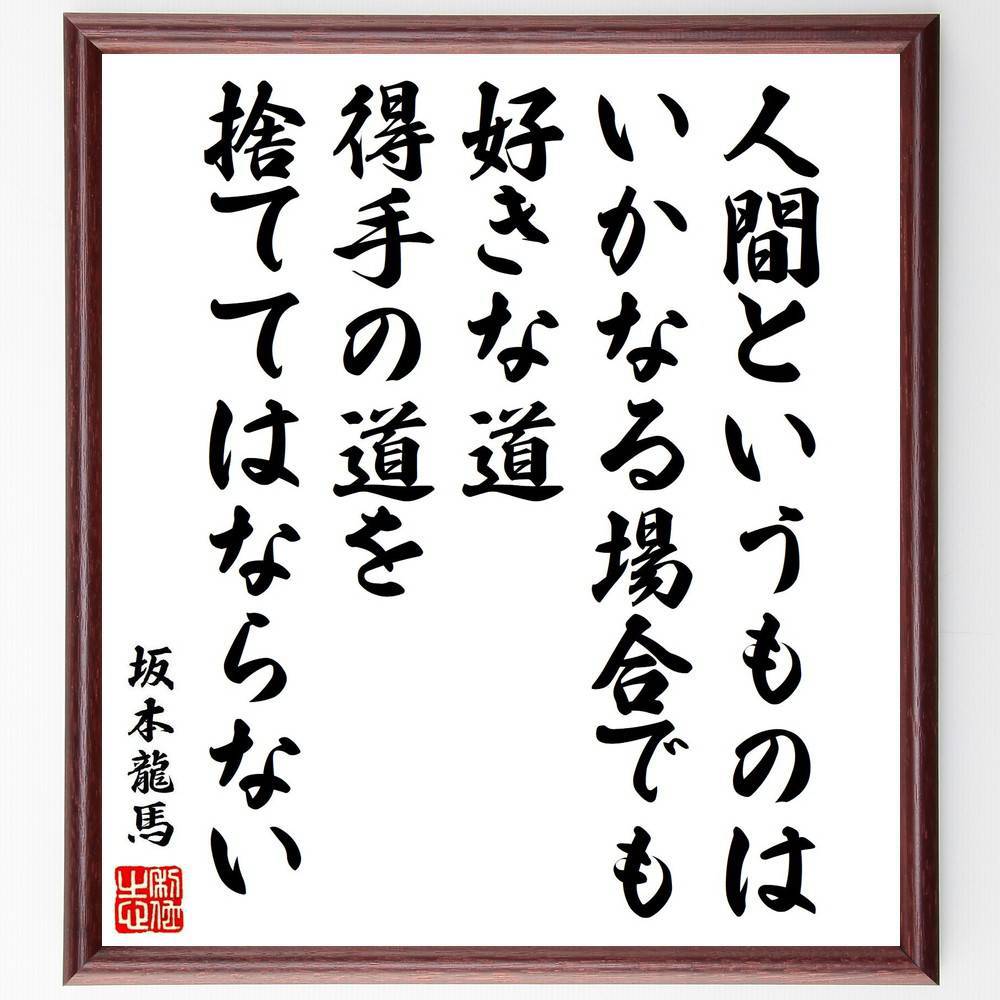 人間というものは
いかなる場合でも
好きな道
得手の道を
捨ててはならない
坂本龍馬